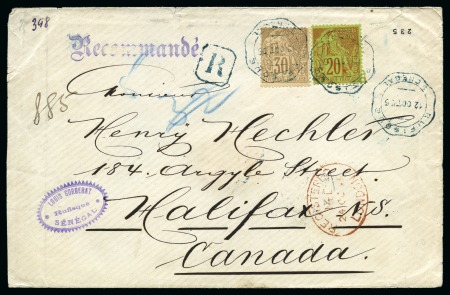 348
Recommandé
R
30
20
235
RUFISQUE
12 OCT 95
SENEGAL
885
Monsieur
Henry Hechler
184. Argyle Street.
Halifax N.S.
Canada.
LOUIS
Rufisque
SÉNÉGAL
REGISTERED